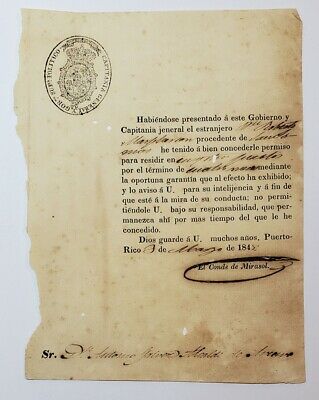 GOB. SUP. POLITICO CAPITANIA GENERAL
Habiéndose presentado á este Gobierno y
Capitania jeneral el estranjero Dn.
procedente de
he tenido á bien concederle permiso
para residir en pueblo
por el término de mediante
la oportuna garantia que al efecto ha exhibido;
y lo aviso á U. para su intelijencia y á fin de
que esté á la mira de su conducta; no permi-
tiéndole U. bajo su responsabilidad, que
permanezca ahí por mas tiempo del que le he
concedido.
Dios guarde á U. muchos años, Puerto-
Rico de 184
El Conde de Mirasol.
Sr. Dn. Antonio Alcalde de